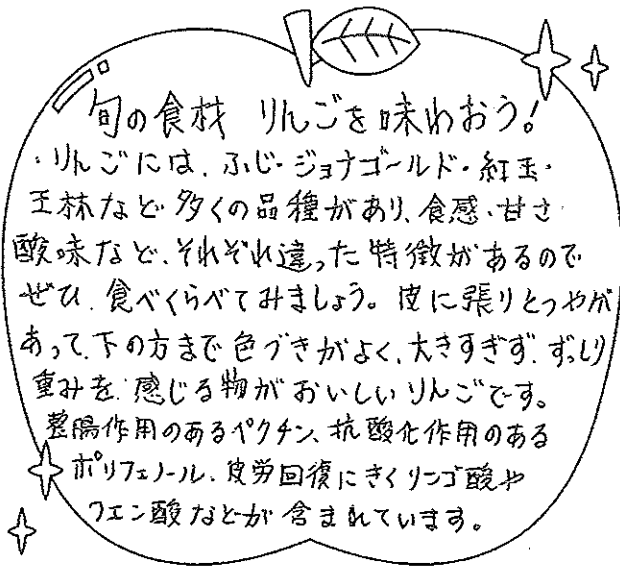 旬の食材 りんごを味わおう!
・りんごには、ふじ・ジョナゴールド・紅玉・
王林など多くの品種があり、食感・甘さ・
酸味など、それぞれ違った特徴があるので
ぜひ、食べくらべてみましょう。皮に張りとつやが
あって、下の方まで色づきがよく、大きすぎず、ずっしり
重みを感じる物がおいしいりんごです。
整腸作用のあるペクチン、抗酸化作用のある
ポリフェノール、疲労回復にきくリンゴ酸や
クエン酸などが含まれています。